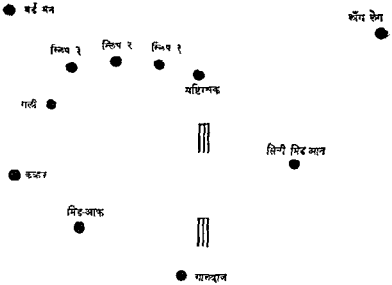 थर्ड मैन
लाँग लेग
स्लिप ३
स्लिप २
स्लिप १
यष्टिरक्षक
गली
सिली मिड आन
कव्हर
मिड-आफ
गोलंदाज